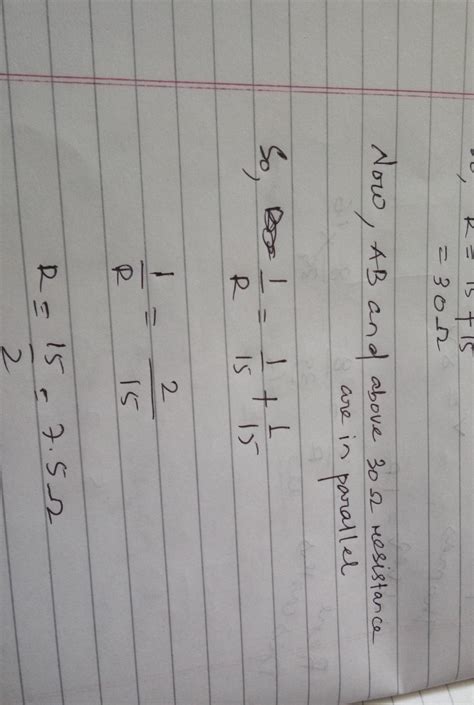 So, R = 15 + 15
= 30Ω
Now, AB and above 30Ω resistance
are in parallel
So, 1/R = 1/15 + 1/15
1/R = 2/15
R = 15/2 = 7.5Ω